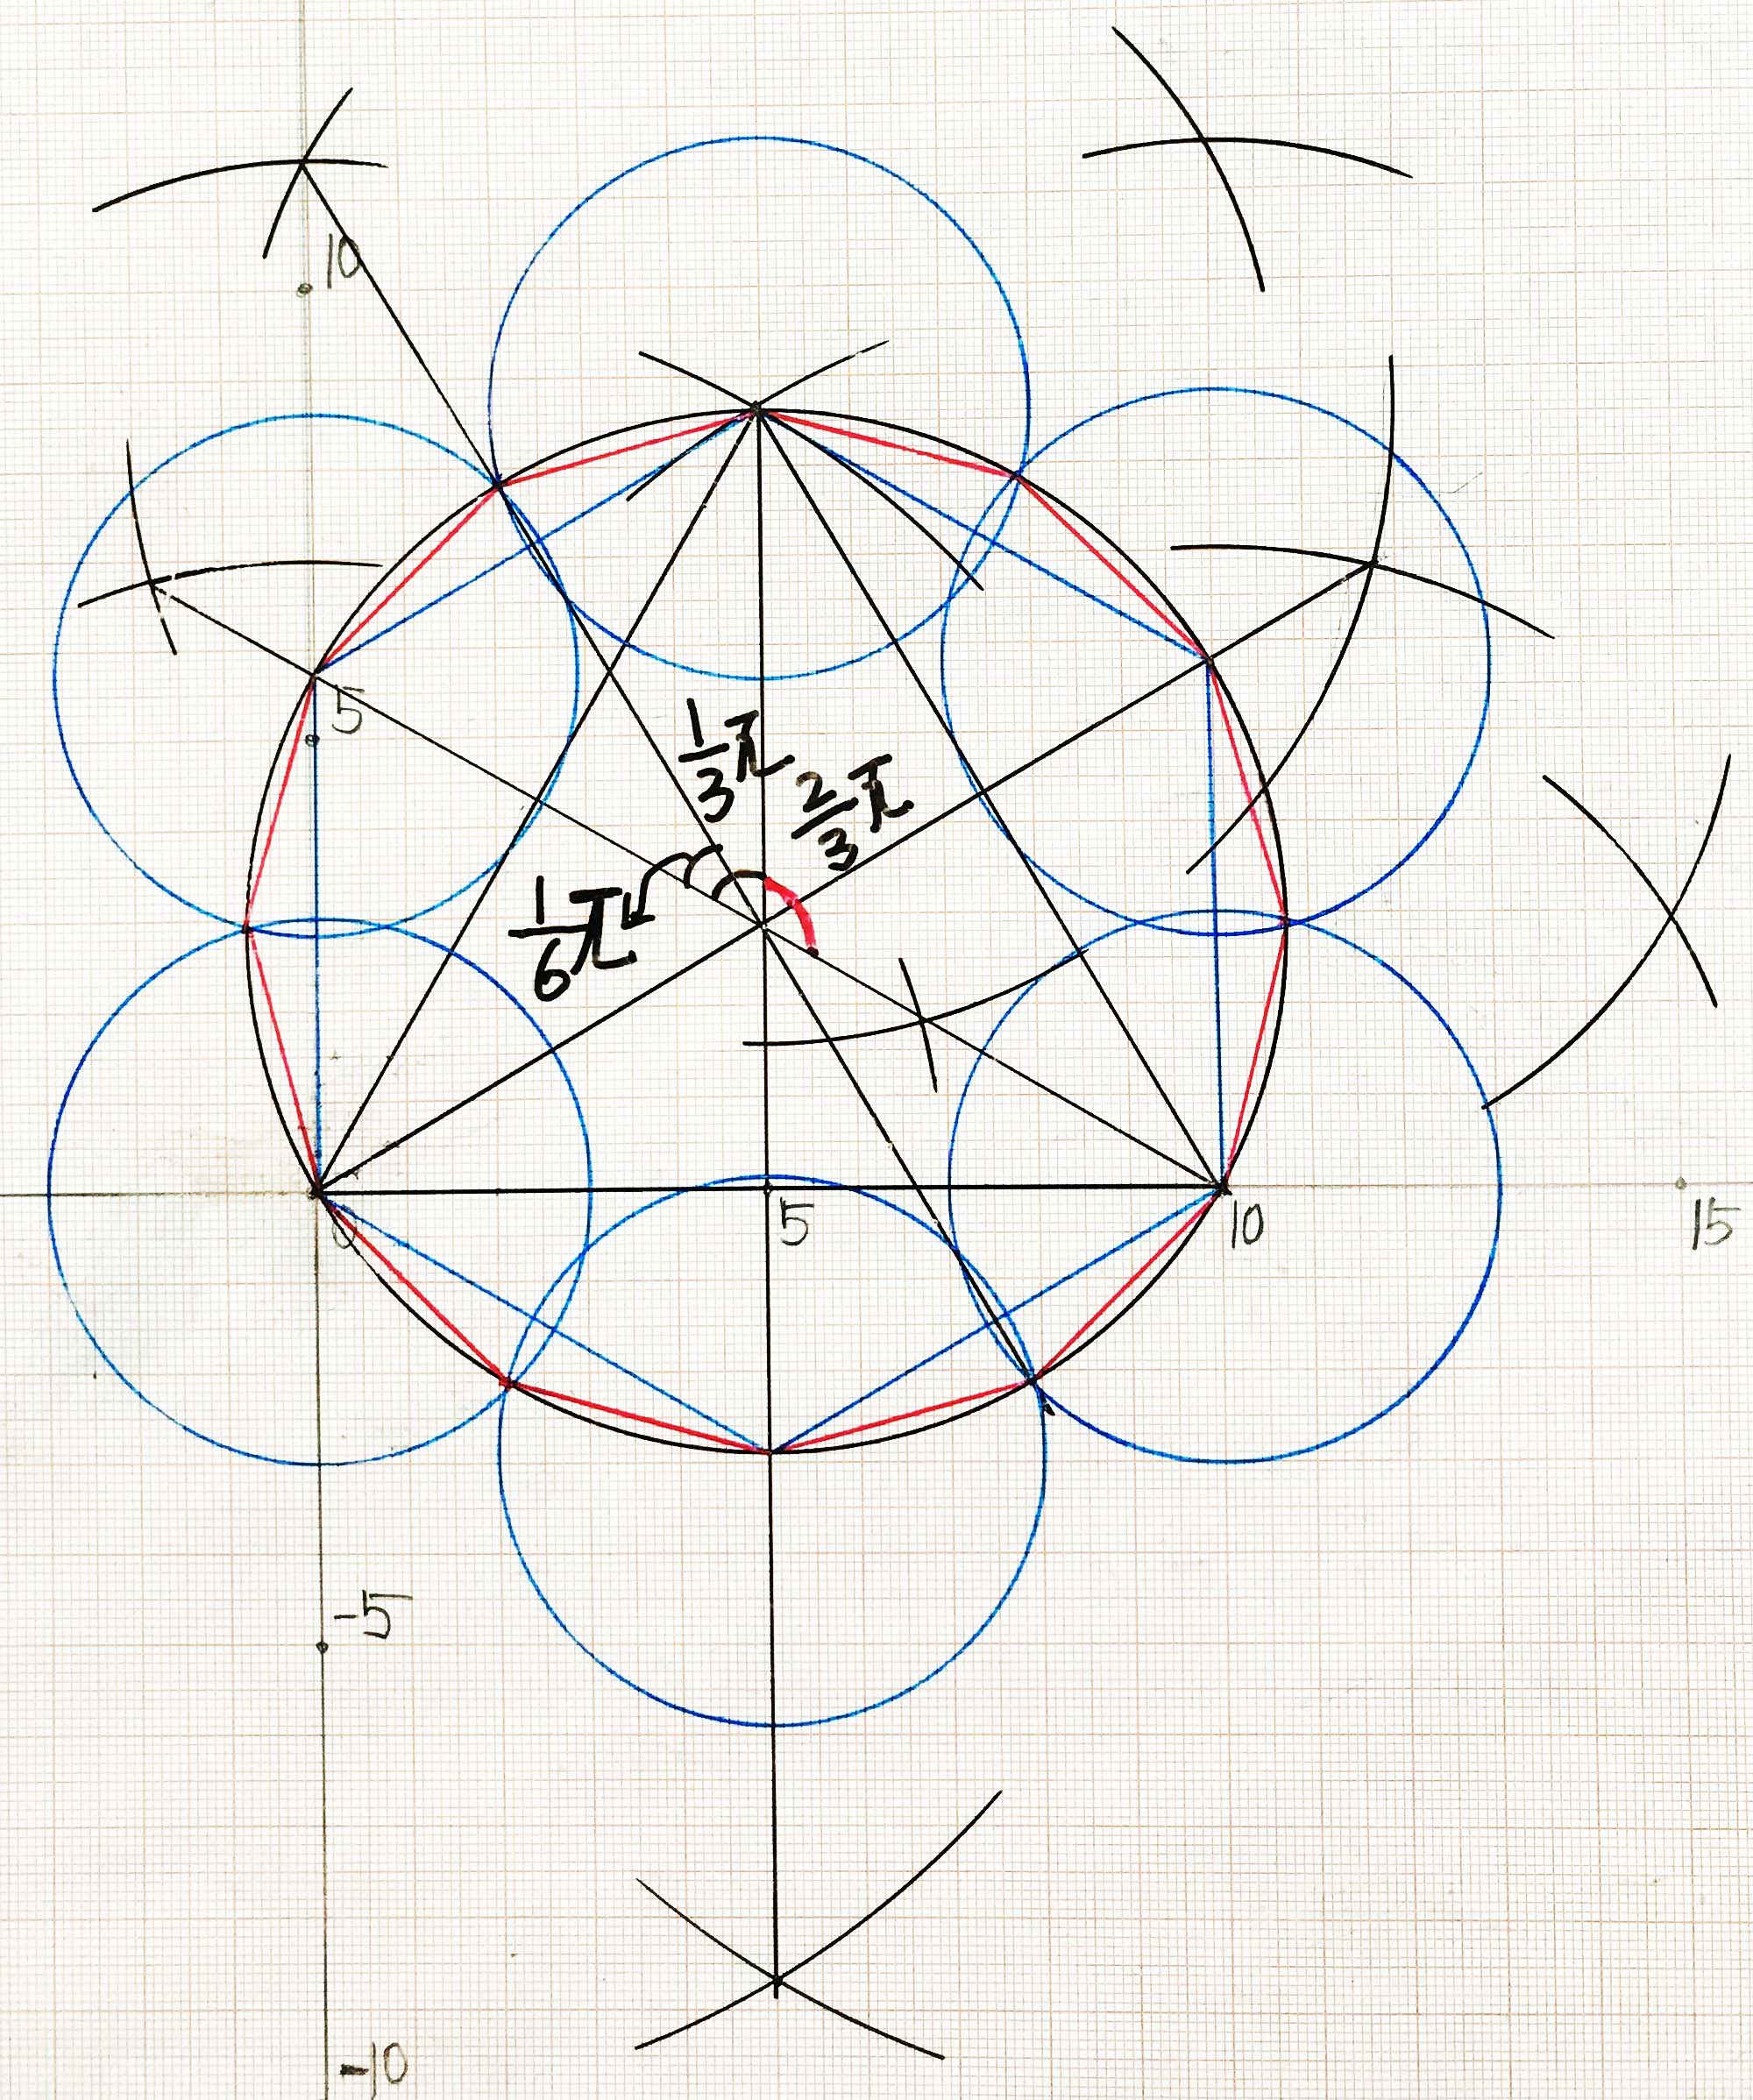 10
5
1/3 π
2/3 π
1/6 π
0
5
10
15
-5
-10